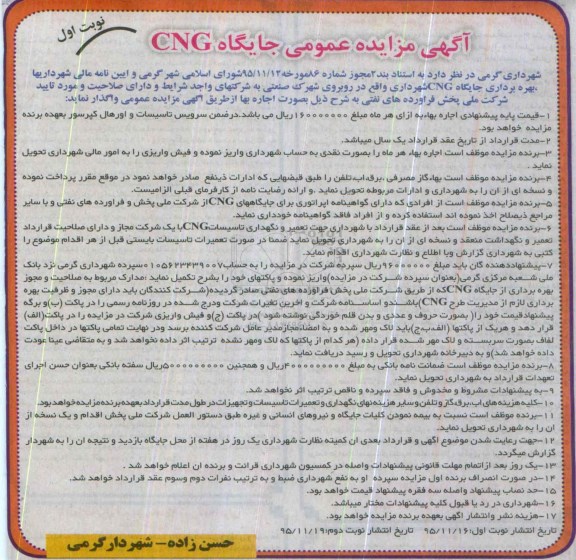 نوبت اول
آگهی مزایده عمومی جایگاه CNG
شهرداری گرمی در نظر دارد به استناد بند۲مجوز شماره ۸۶مورخه۹۵/۱۱/۱۲شورای اسلامی شهر گرمی و آیین نامه مالی شهرداریها
،بهره برداری جایگاه CNGشهرداری واقع در روبروی شهرک صنعتی به شرکتهای واجد شرایط و دارای صلاحیت و مورد تایید
شرکت ملی پخش فراورده های نفتی به شرح ذیل بصورت اجاره بها ازطریق آگهی مزایده عمومی واگذار نماید:
۱-قیمت پایه پیشنهادی اجاره بهاءبه ازای هر ماه مبلغ ۱۶۰۰۰۰۰۰۰ریال می باشد.درضمن سرویس تاسیسات و اورهال کپرسور بعهده برنده
مزایده خواهد بود.
۲-مدت قرارداد از تاریخ عقد قرارداد یک سال میباشد.
۳-برنده مزایده موظف است اجاره بهاء هر ماه را بصورت نقدی به حساب شهرداری واریز نموده و فیش واریزی را به امور مالی شهرداری تحویل
نماید.
۴-برنده مزایده موظف است بهاءگاز مصرفی ،برق،آب،تلفن را طبق قبضهایی که ادارات ذینفع صادر خواهد نمود در موقع مقرر پرداخت نموده
و نسخه ای از آن را به شهرداری و ادارات مربوطه تحویل نماید .و ارائه رضایت نامه از کارفرمای قبلی الزامیست.
۵-برنده مزایده موظف است از افرادی که دارای گواهینامه اپراتوری برای جایگاههای CNGاز شرکت ملی پخش و فراورده های نفتی و یا سایر
مراجع ذیصلاح اخذ نموده اند استفاده کرده و از افراد فاقد گواهینامه خودداری نماید.
۶-برنده مزایده موظف است بعد از عقد قرارداد با شهرداری جهت تعمیر و نگهداری تاسیساتCNGبا یک شرکت مجاز و دارای صلاحیت قرارداد
تعمیر و نگهداشت منعقد و نسخه ای از آن را به شهرداری تحویل نماید ضمنا در صورت تعمیرات تاسیسات بایستی قبل از هر اقدام موضوع را
کتبی به شهرداری گزارش وبا اطلاع و نظارت شهرداری اقدام نماید.
۷-پیشنهاددهنده گان باید مبلغ ۹۶۰۰۰۰۰۰ریال سپرده شرکت در مزایده را به حساب ۰۱۰۵۶۲۳۴۳۹۰۰۷سپرده شهرداری گرمی نزد بانک
ملی شعبه مرکزی گرمی(بعنوان سپرده شرکت در مزایده)واریز نموده و پاکتهای خود را بشرح تکمیل نماید ،مدارک مربوط به صلاحیت و مجوز
بهره برداری از جایگاه CNGکه از طریق شرکت ملی پخش فراورده های نفتی صادر گردیده(شرکت کنندگان باید دارای مجوز و ظرفیت بهره
برداری لازم از مدیریت طرح CNG)باشندو اساسنامه شرکت و آخرین تغیرات شرکت ودرج شده در روزنامه رسمی را در پاکت (ب)و برگه
پیشنهادقیمت خود را( بصورت حروف و عددی و بدن قلم خوردگی نوشته شود)در پاکت (ج)و فیش واریزی شرکت در مزایده را در پاکت(الف)
قرار دهد و هریک از پاکتها (الف،ب،ج)باید لاک ومهر شده و به امضاءمجازمدیر عامل شرکت کننده برسد ودر نهایت تمامی پاکتها در داخل پاکت
لفاف بصورت سربسته و لاک مهر شده قرار داده (هر کدام از پاکتها که لاک ومهر نشده ترتیب اثر داده نخواهد شد و به متقاضی عینا عودت
داده خواهد شد)و به دبیرخانه شهرداری تحویل و رسید دریافت نماید.
۸-برنده مزایده موظف است ضمانت نامه بانکی به مبلغ ۴۰۰۰۰۰۰۰۰۰ریال و همچنین ۵۰۰۰۰۰۰۰۰۰ریال سفته بانکی بعنوان حسن اجرای
تعهدات قرارداد به شهرداری تحویل نماید.
۹-به پیشنهادات مشروط و مخدوش و فاقد سپرده و ناقص ترتیب اثر نخواهد شد.
۱۰-کلیه هزینه های آب،برق،گاز و تلفن و سایر هزینه نهای نگهداری و تعمیرات تاسیسات و تجهیزات در طول مدت قرارداد بعهده برنده مزایده خواهد بود.
۱۱-برنده موظف است نسبت به بیمه نمودن کلیات جایگاه و نیروهای انسانی و غیره طبق دستور العمل شرکت ملی پخش اقدام و یک نسخه از
آن را به شهرداری تحویل نماید.
۱۲-جهت رعایت شدن موضوع آگهی و قرارداد بعدی آن کمیته نظارت شهرداری یک روز در هفته از محل جایگاه بازدید و نتیجه آن را به شهردار
گزارش میگردد.
۱۳-یک روز بعد ازاتمام مهلت قانونی پیشنهادات واصله در کمسیون شهرداری قرائت و برنده آن اعلام خواهد شد .
۱۴-در صورت انصراف برنده اول مزایده سپرده او به نفع شهرداری ضبط و به ترتیب نفرات دوم وسوم عقد قرارداد خواهد شد.
۱۵-حد نصاب پیشنهاد واصله سه فقره پیشنهاد قیمت خواهد بود.
۱۶-شهرداری در رد یا قبول کلیه پیشنهادات مختار میباشد.
۱۷-هزینه نشر وانتشار آگهی بعهده برنده مزایده خواهد بود.
تاریخ انتشار نوبت اول:۹۵/۱۱/۱۶ تاریخ انتشار نوبت دوم:۹۵/۱۱/۱۹
حسن زاده- شهردارگرمی